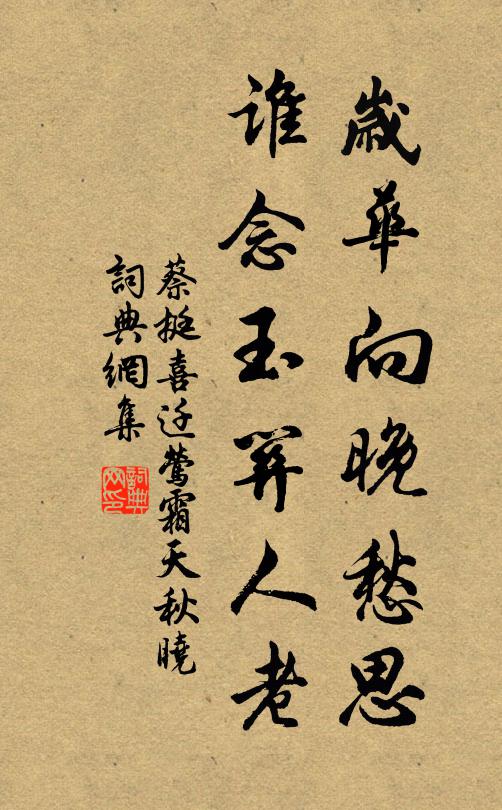 歲華向晚愁思
誰念玉關人老
蔡挺喜迁鶯霜天秋曉
詞典網集
詞典
网印